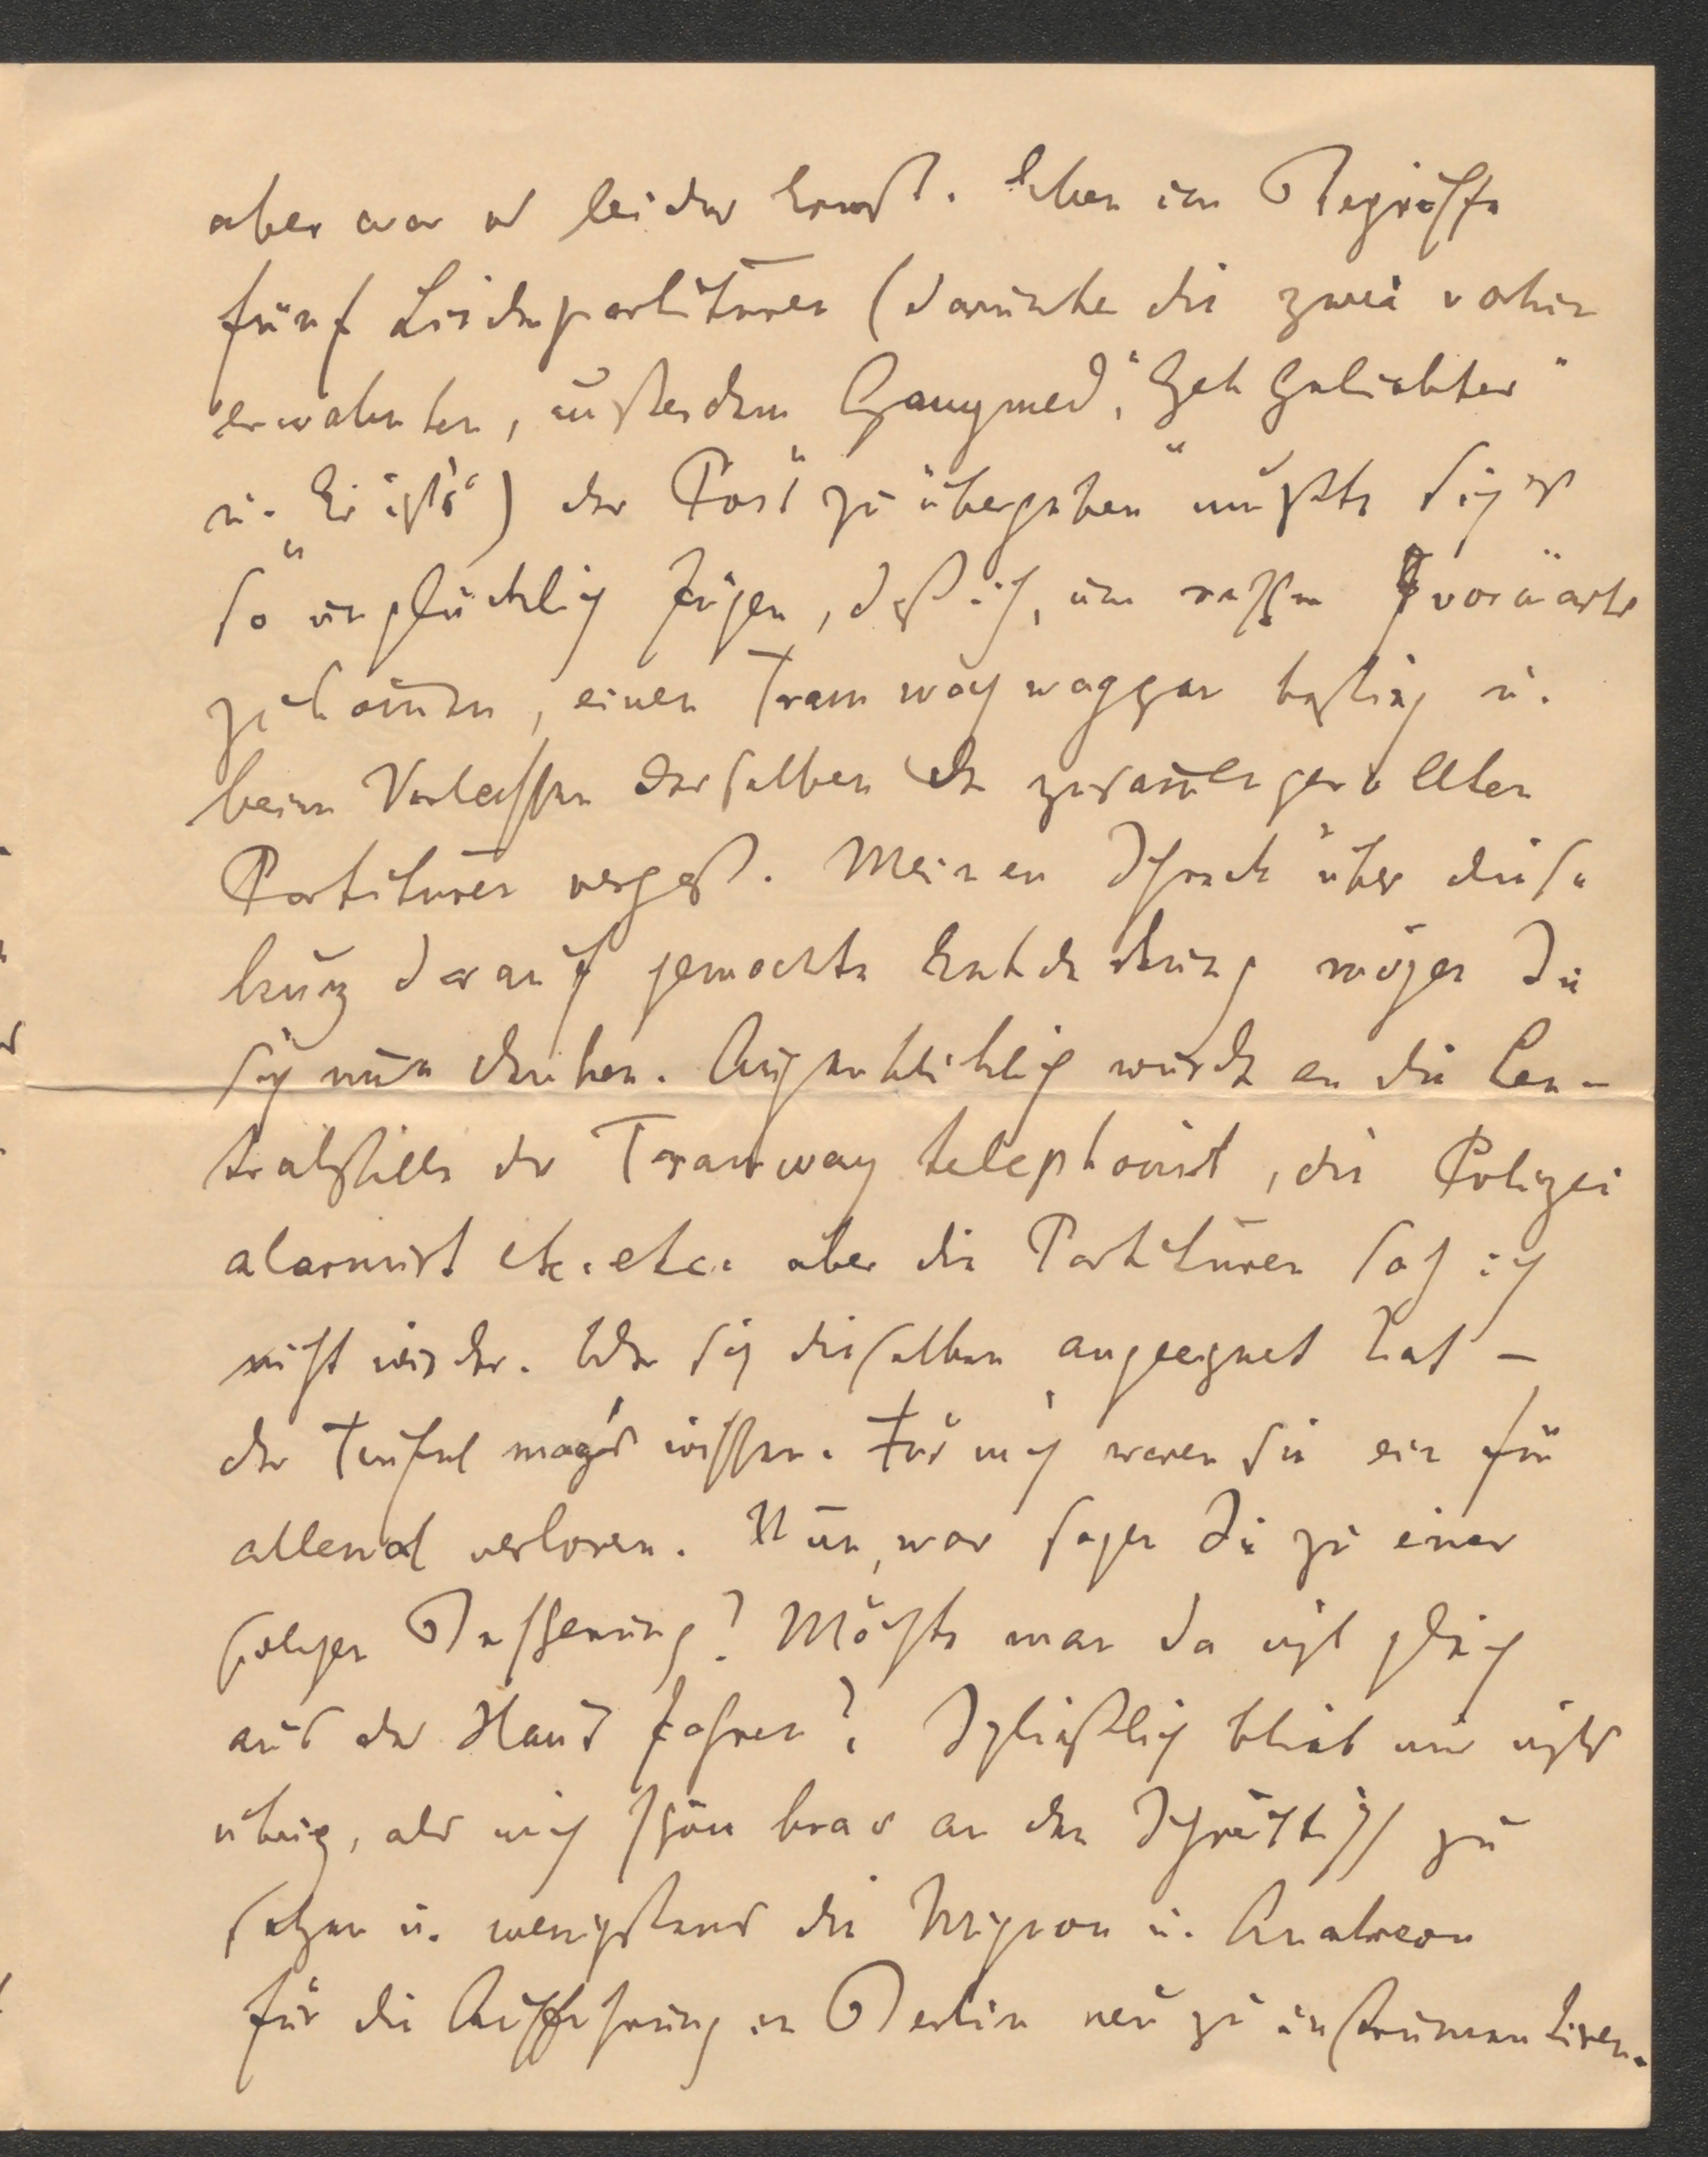 aber war es leider Ernst. Eben im Begriffe
fünf Liederpartituren (darunter die zwei vorhin
erwähnten, außerdem Ganymed, "Geh Geliebter"
u. "Er ists") der Post zu übergeben mußte sichs
so unglücklich fügen, daß ich, um rascher vorwärts
zu kommen, einen Tramwaywaggon bestieg u.
beim Verlassen desselben die zusammengerollten
Partituren vergaß. Meinen Schreck über diese
kurz darauf gemachte Entdeckung mögen Sie
sich nun denken. Augenblicklich wurde an die Cen-
tralstelle der Tramway telephonirt, die Polizei
alarmirt etc. etc. aber die Partituren sah ich
nicht wieder. Wer sich dieselben angeeignet hat –
der Teufel mag's wissen. Für mich waren sie ein für
allemal verloren. Nun, was sagen Sie zu einer
solchen Bescherung? Möchte man da nicht gleich
aus der Haut fahren? Schließlich blieb mir nichts
übrig, als mich schön brav an den Schreibtisch zu
setzen u. wenigstens die Mignon u. Anakreon
für die Aufführung in Berlin neu zu instrumentiren.